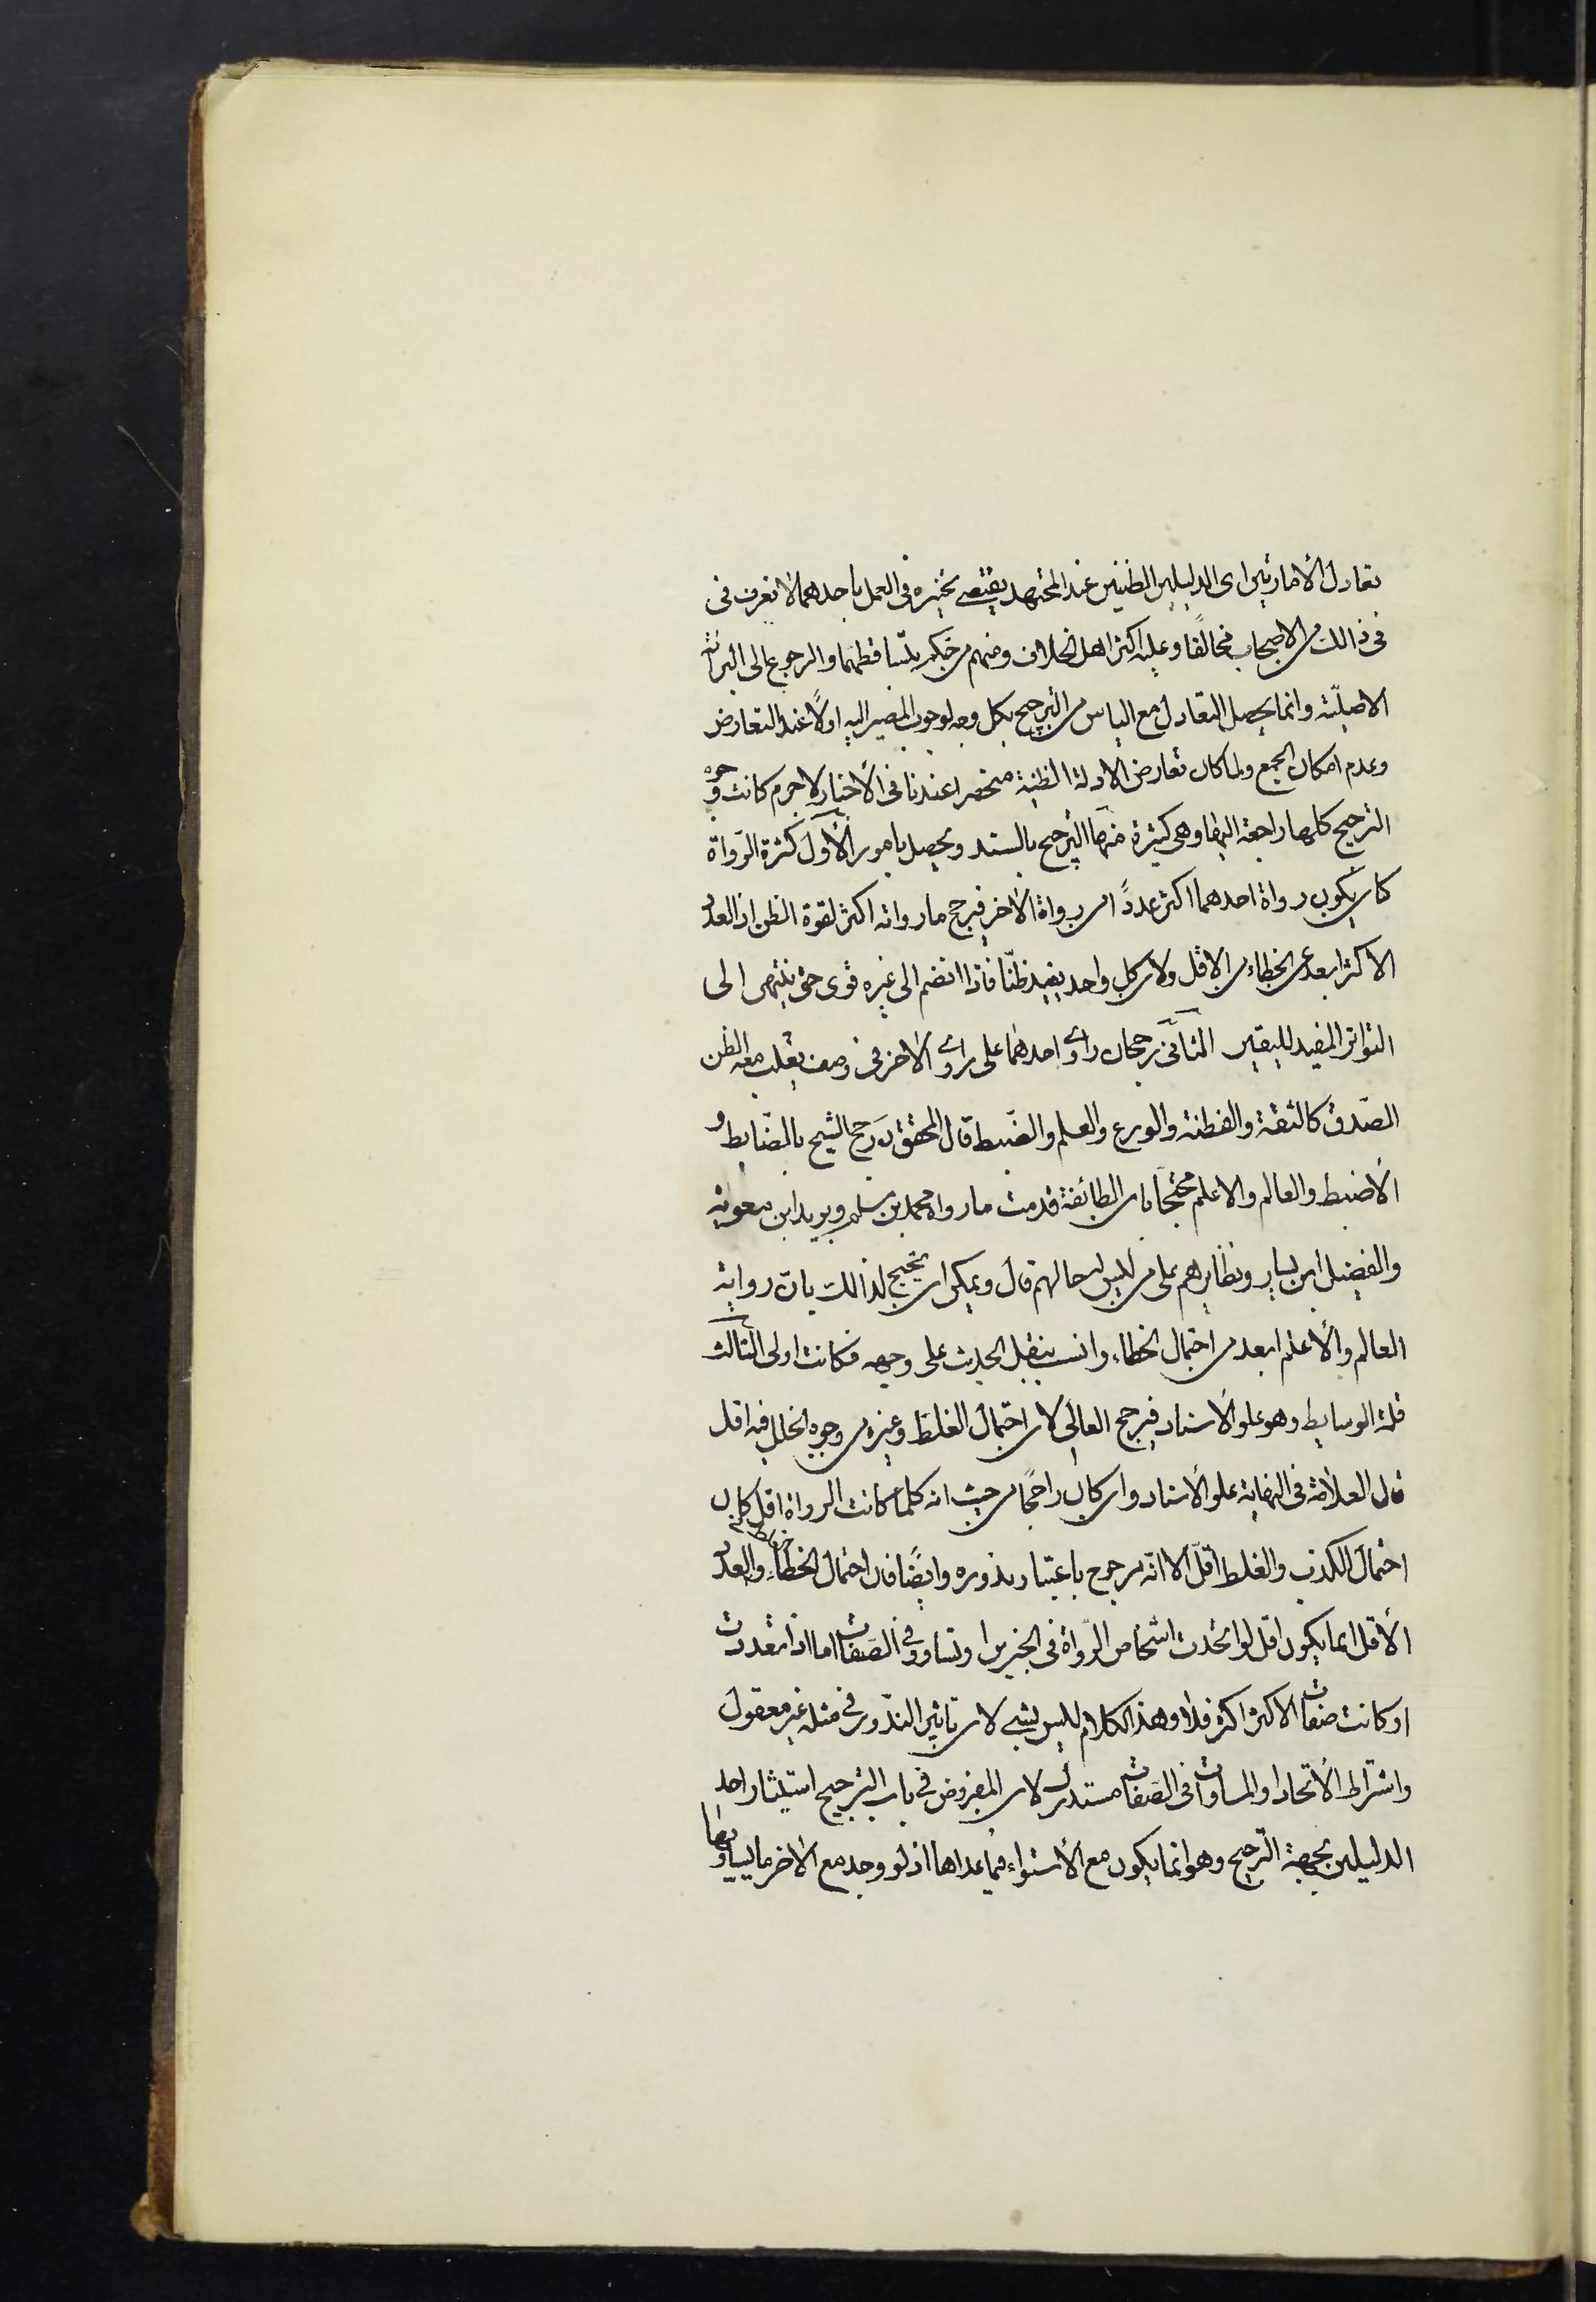 تعادل الأمارتين اى الدليلين الظنيين عند المجتهد يقتضى تخييره فى العمل باحدهما لا نعرف فى
فى ذالك من الاصحاب مخالفا وعليه اكثر اهل الخلاف ومنهم من حكم بتساقطهما والرجوع الى البرائة
الاصليّة وانما يحصل التعادل مع الياس من الترجيح بكل وجه لوجوب المصير اليه اولًا عند التعارض
وعدم امكان الجمع ولما كان تعارض الادلة الظنية منحصرا عندنا فى الأخبار لا جرم كانت وجوه
الترجيح كلها راجعة اليها وهى كثيرة منها الترجيح بالسند ويحصل بامور الأول كثرة الرّواة
كان يكون رواة احدهما اكثر عددًا من رواة الاخر فيرجح ما رواته اكثر لقوة الظن اذ العدد
الاكثر ابعد عن الخطاء من الاقل ولان كل واحد يفيد ظنّا فاذا انضم الى غيره قوى حتى ينتهى الى
التواتر المفيد لليقين الثانى رجحان راوى احدهما على راوى الاخر فى وصف يغلب معه الظن
الصّدق كالثقة والفطنة والورع والعلم والضّبط قال المحقق ره رجح الشيخ بالضّابط و
الأضبط والعالم والاعلم محتجًا بان الطائفة قدمت ما رواه محمد بن مسلم وبريد ابن معوية
والفضيل ابن يسار ونظايرهم على من ليس له حالهم قال ويمكن ان يحتج لذالك بان رواية
العالم والأعلم ابعد من احتمال الخطاء وانسب بنقل الحديث على وجهه فكانت اولى الثالث
قلة الوسايط وهو علو الأسناد فيرجح العالى لان احتمال الغلط وغيره من وجوه الخلل فيه اقل
قال العلاّمة فى النهاية علو الأسناد وان كان راجحًا من حيث انه كلما كانت الرواة اقل كان
احتمال الكذب والغلط اقلّ الا انّه مرجوح باعتبار ندوره وايضًا فان احتمال الخطاء والعدد
الأقل انما يكون اقل لو اتحدت اشخاص الرّواة فى الخبرين او تساووا فى الصّفات اما اذا تعددت
او كانت صفات الاكثر اكثر فلا وهذا الكلام ليس بشىء لان تاثير النّدور فى مثله غير معقول
واشتراط الأتحاد او المساوات فى الصّفات مستدرك لان المفروض فى باب الترجيح استيثار احد
الدليلين بجهة الترجيح وهو انما يكون مع الأستواء فيما عداها اذ لو وجد مع الاخر ما يساويها